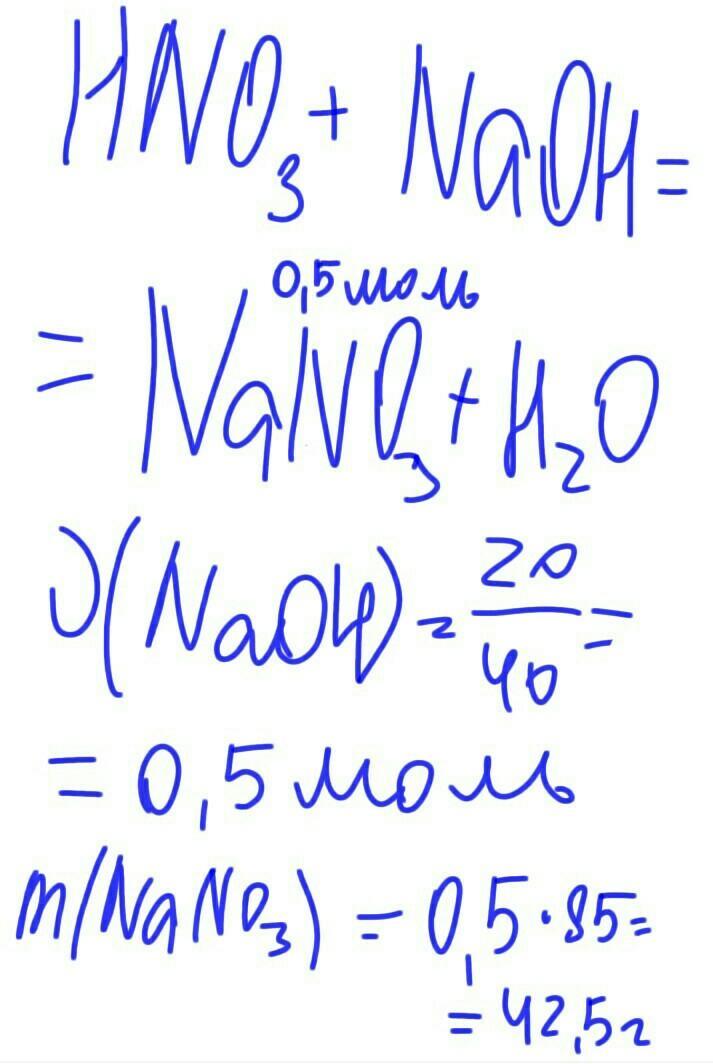 HNO₃ + NaOH =
0,5 моль
= NaNO₃ + H₂O
ν(NaOH) = 20/40 =
= 0,5 моль
m(NaNO₃) = 0,5·85 =
= 42,5г